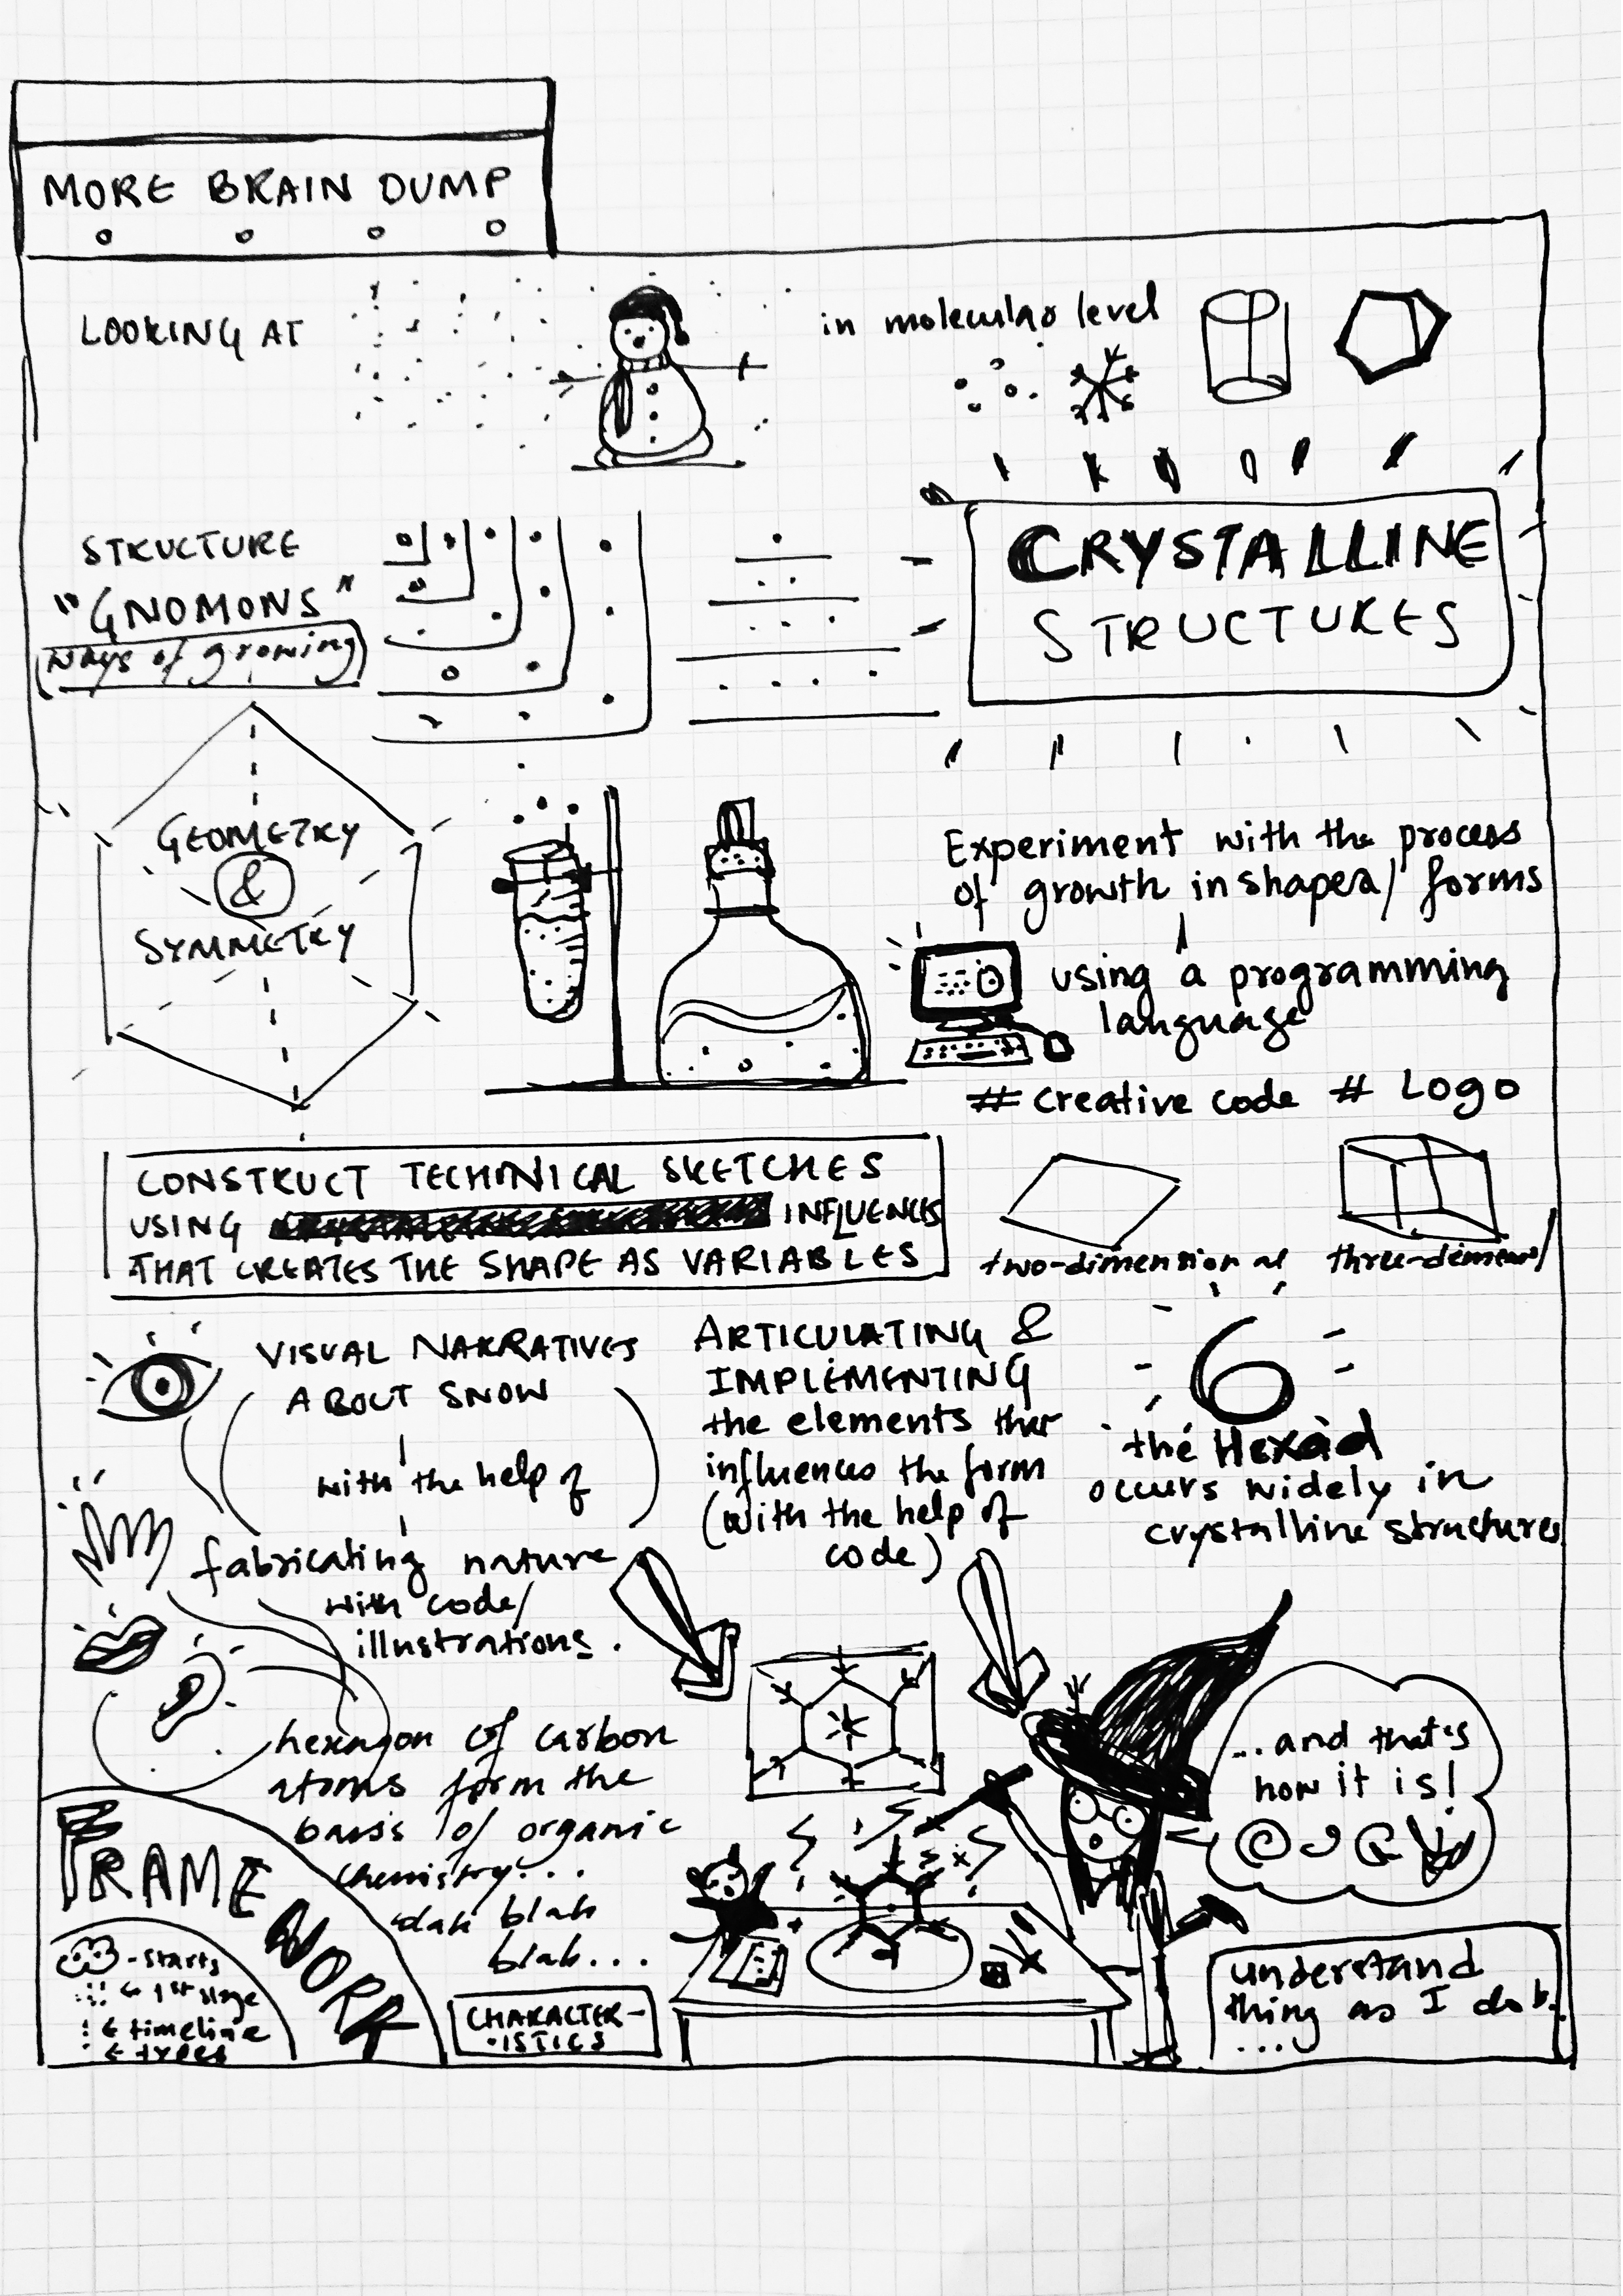 MORE BRAIN DUMP
LOOKING AT
in molecular level
STRUCTURE
"GNOMONS"
(ways of growing)
CRYSTALLINE
STRUCTURES
GEOMETRY
&
SYMMETRY
Experiment with the process
of growth in shapes/ forms
using a programming
language
# creative code # LOGO
CONSTRUCT TECHNICAL SKETCHES
USING INFLUENCES
THAT CREATES THE SHAPE AS VARIABLES
two-dimensional
three-
VISUAL NARRATIVES
ABOUT SNOW
with the help of
fabricating nature
with code/
illustrations.
ARTICULATING &
IMPLEMENTING
the elements that
influences the form
(with the help of
code)
6
the Hexad
occurs widely in
crystalline structures
hexagon of carbon
atoms form the
basis of organic
chemistry...
dah blah
blah...
FRAME
WORK
- starts
← 1st stage
← timeline
← trees
CHARACTER-
ISTICS
...and that's
how it is!
understand
thing as I do b.
...